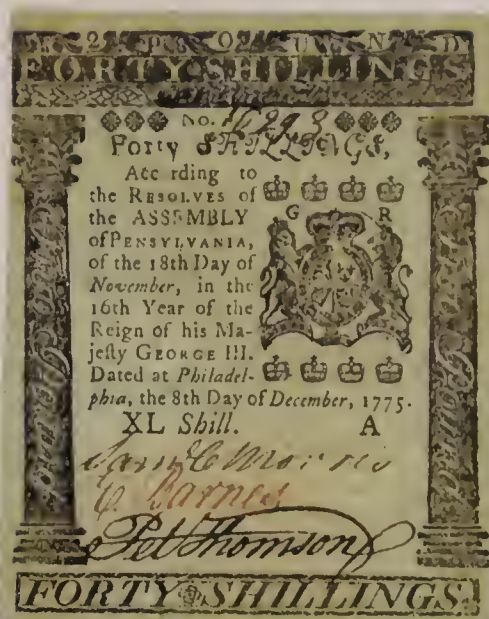 2 P O U N D
FORTY SHILLINGS
No. 16298
Forty SHILLINGS,
Acc rding to
the RESOLVES of
the ASSEMBLY
of PENSYLVANIA,
of the 18th Day of
November, in the
16th Year of the
Reign of his Ma-
jesty GEORGE III.
Dated at Philadel-
phia, the 8th Day of December, 1775.
G R
XL Shill. A
Saml C Morris
C Barnes
Pet Thomson
FORTY SHILLINGS.